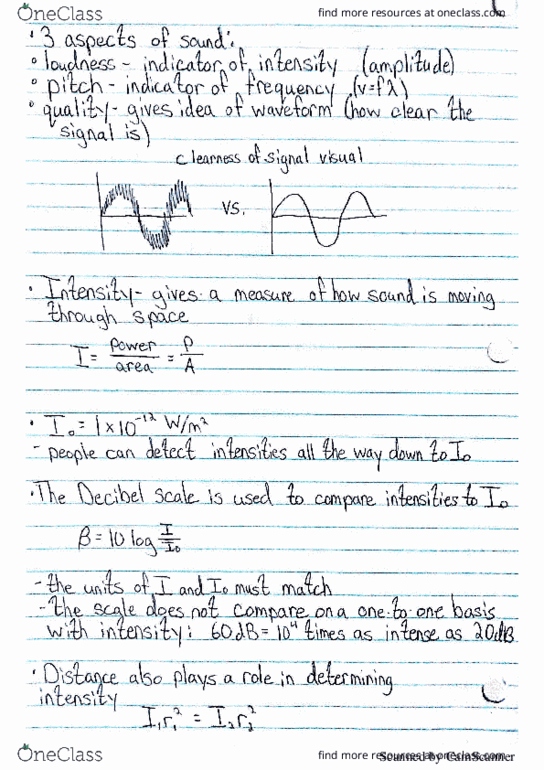 OneClass
find more resources at oneclass.com
• 3 aspects of sound:
• loudness - indicator of intensity (amplitude)
• pitch - indicator of frequency (v=fλ)
• quality - gives idea of waveform (how clear the
signal is)
clearness of signal visual
vs.
• Intensity - gives a measure of how sound is moving
through space
I = power/area = P/A
• I₀ = 1×10⁻¹² W/m²
- people can detect intensities all the way down to I₀
• The Decibel scale is used to compare intensities to I₀
β = 10 log I/I₀
- the units of I and I₀ must match
- the scale does not compare on a one-to-one basis
with intensity: 60dB = 10⁴ times as intense as 20dB
• Distance also plays a role in determining
intensity
I₁r₁² = I₂r₂²
OneClass
find more resources at oneclass.com
Scanned by CamScanner